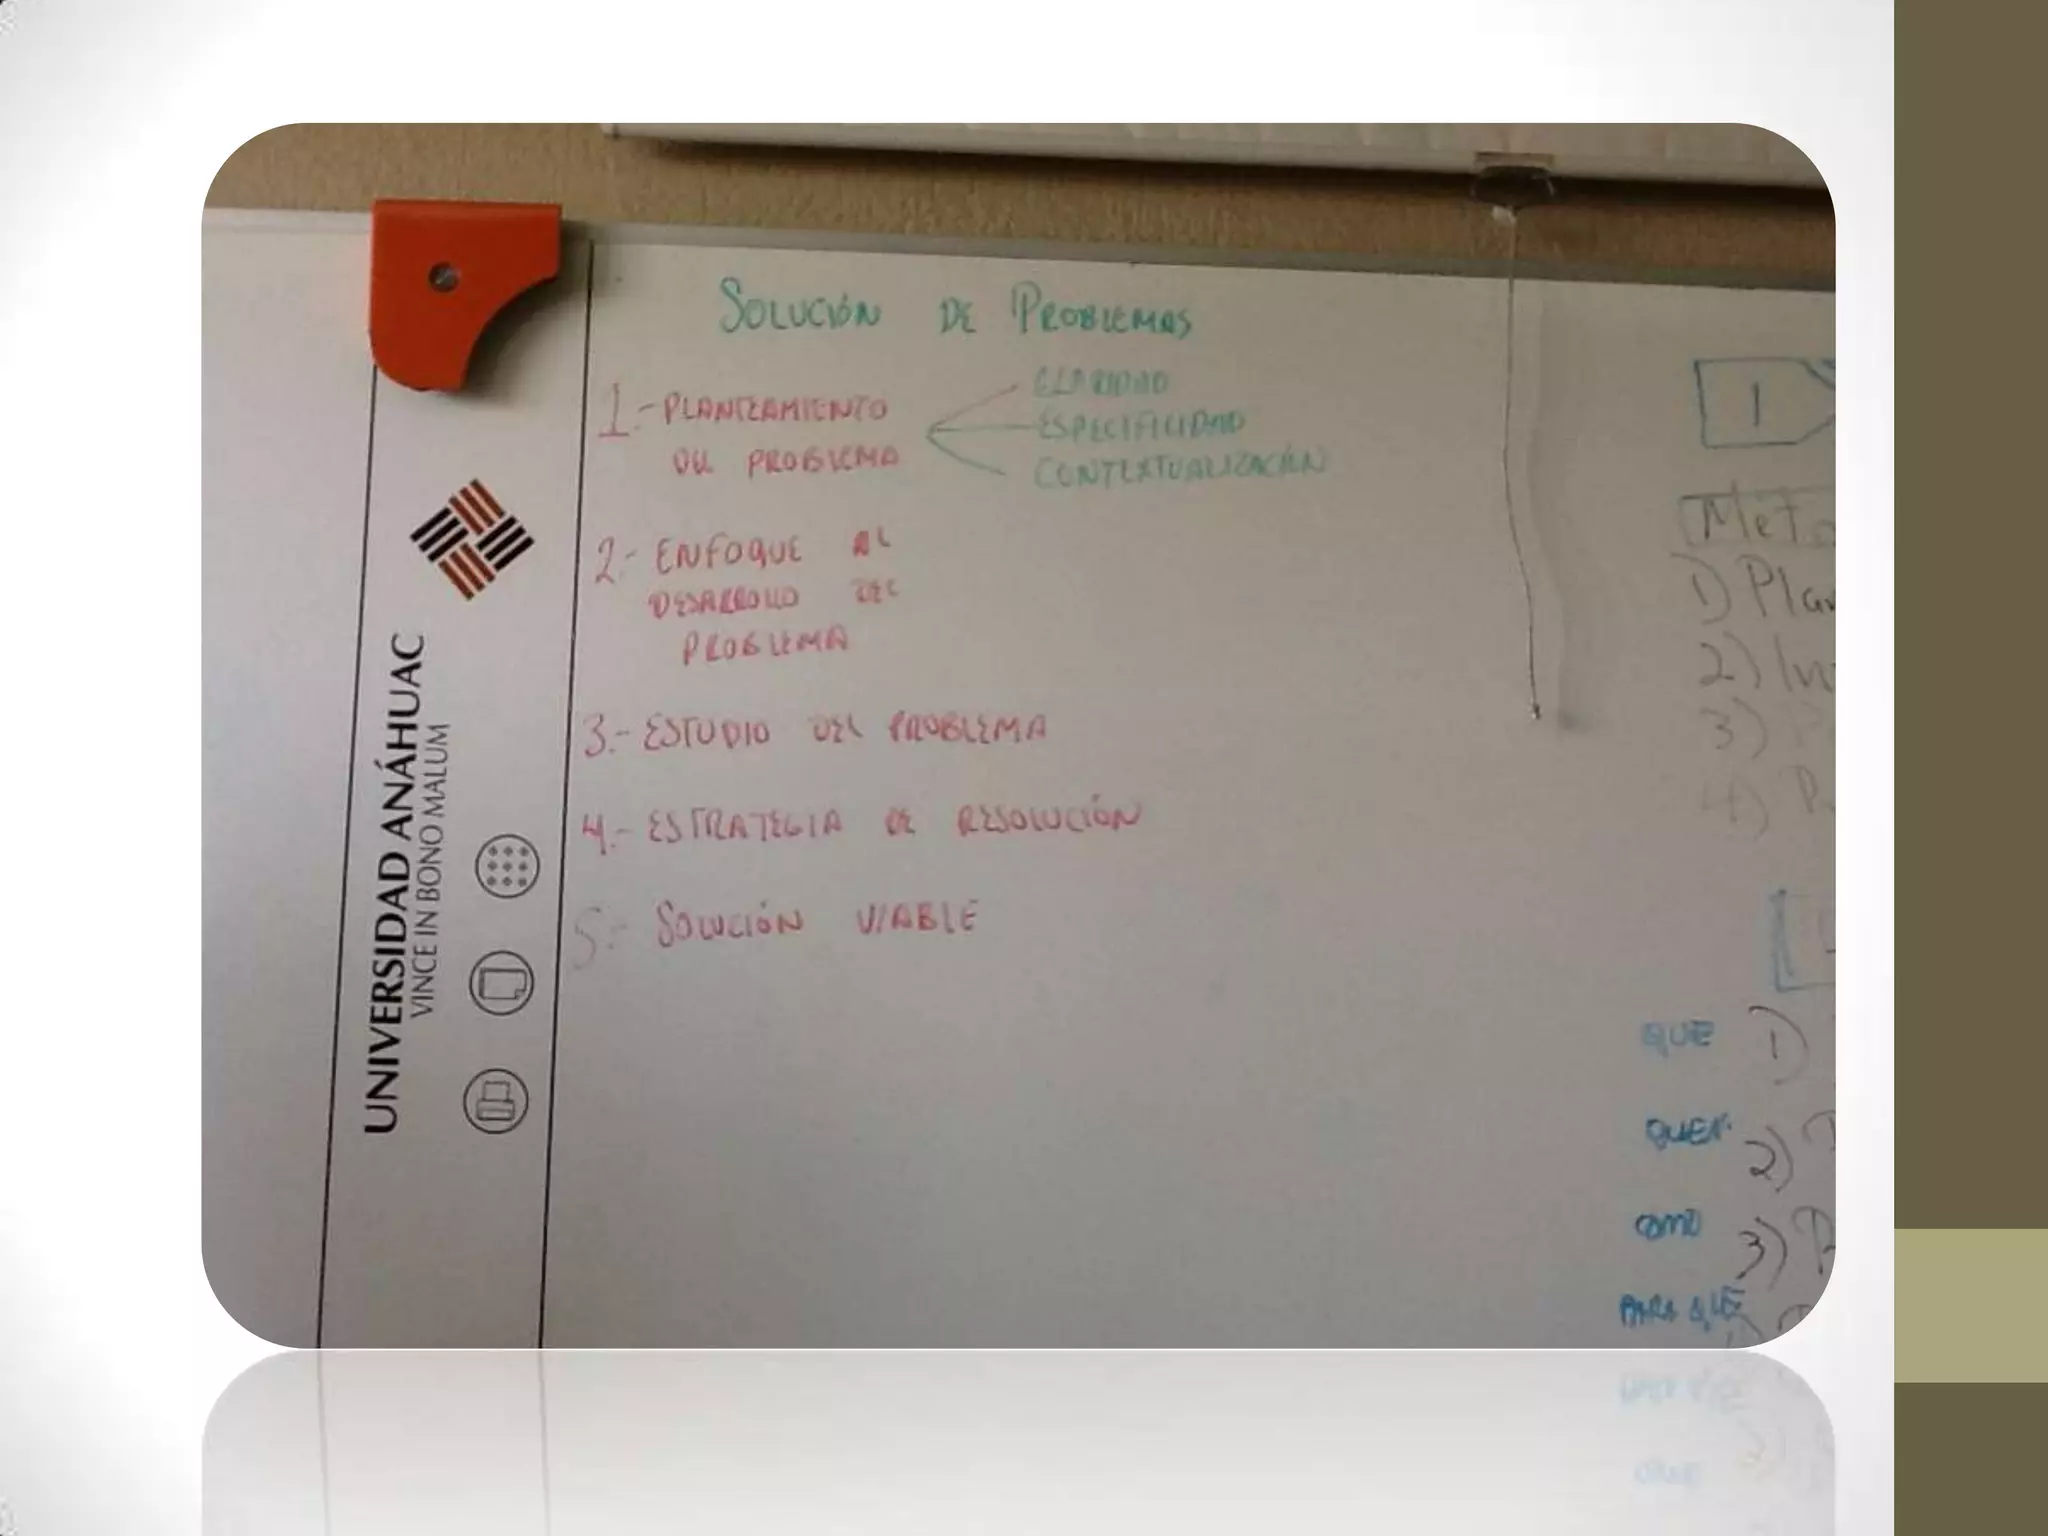 SOLUCIÓN DE PROBLEMAS
1.- PLANTEAMIENTO
DEL PROBLEMA
CLARIDAD
ESPECIFICIDAD
CONTEXTUALIZACIÓN
2.- ENFOQUE AL
DESARROLLO DEL
PROBLEMA
3.- ESTUDIO DEL PROBLEMA
4.- ESTRATEGIA DE RESOLUCIÓN
5.- SOLUCIÓN VIABLE
UNIVERSIDAD ANÁHUAC
VINCE IN BONO MALUM
1
Meto
1) Plan
2) In
3)
4) P
QUE 1)
2)
COMO 3)
PARA QUE